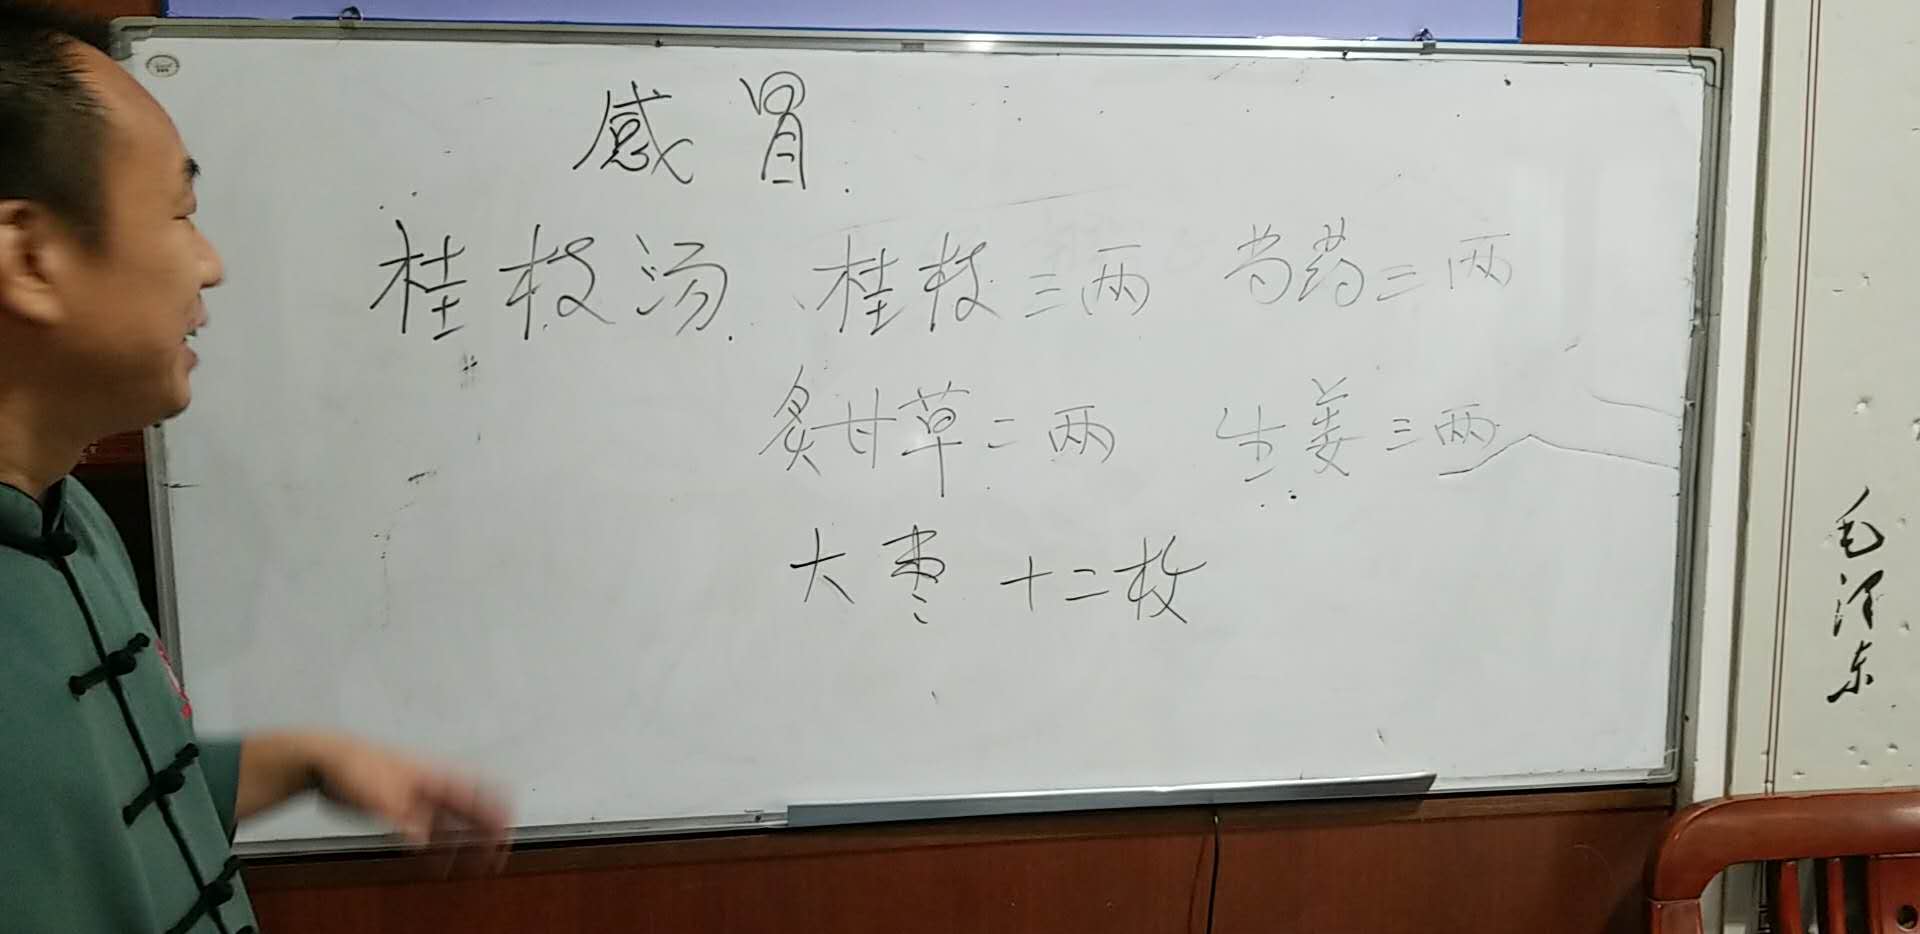 感冒.
桂枝汤. 桂枝三两 芍药三两
炙甘草二两 生姜三两
大枣 十二枚
毛泽东